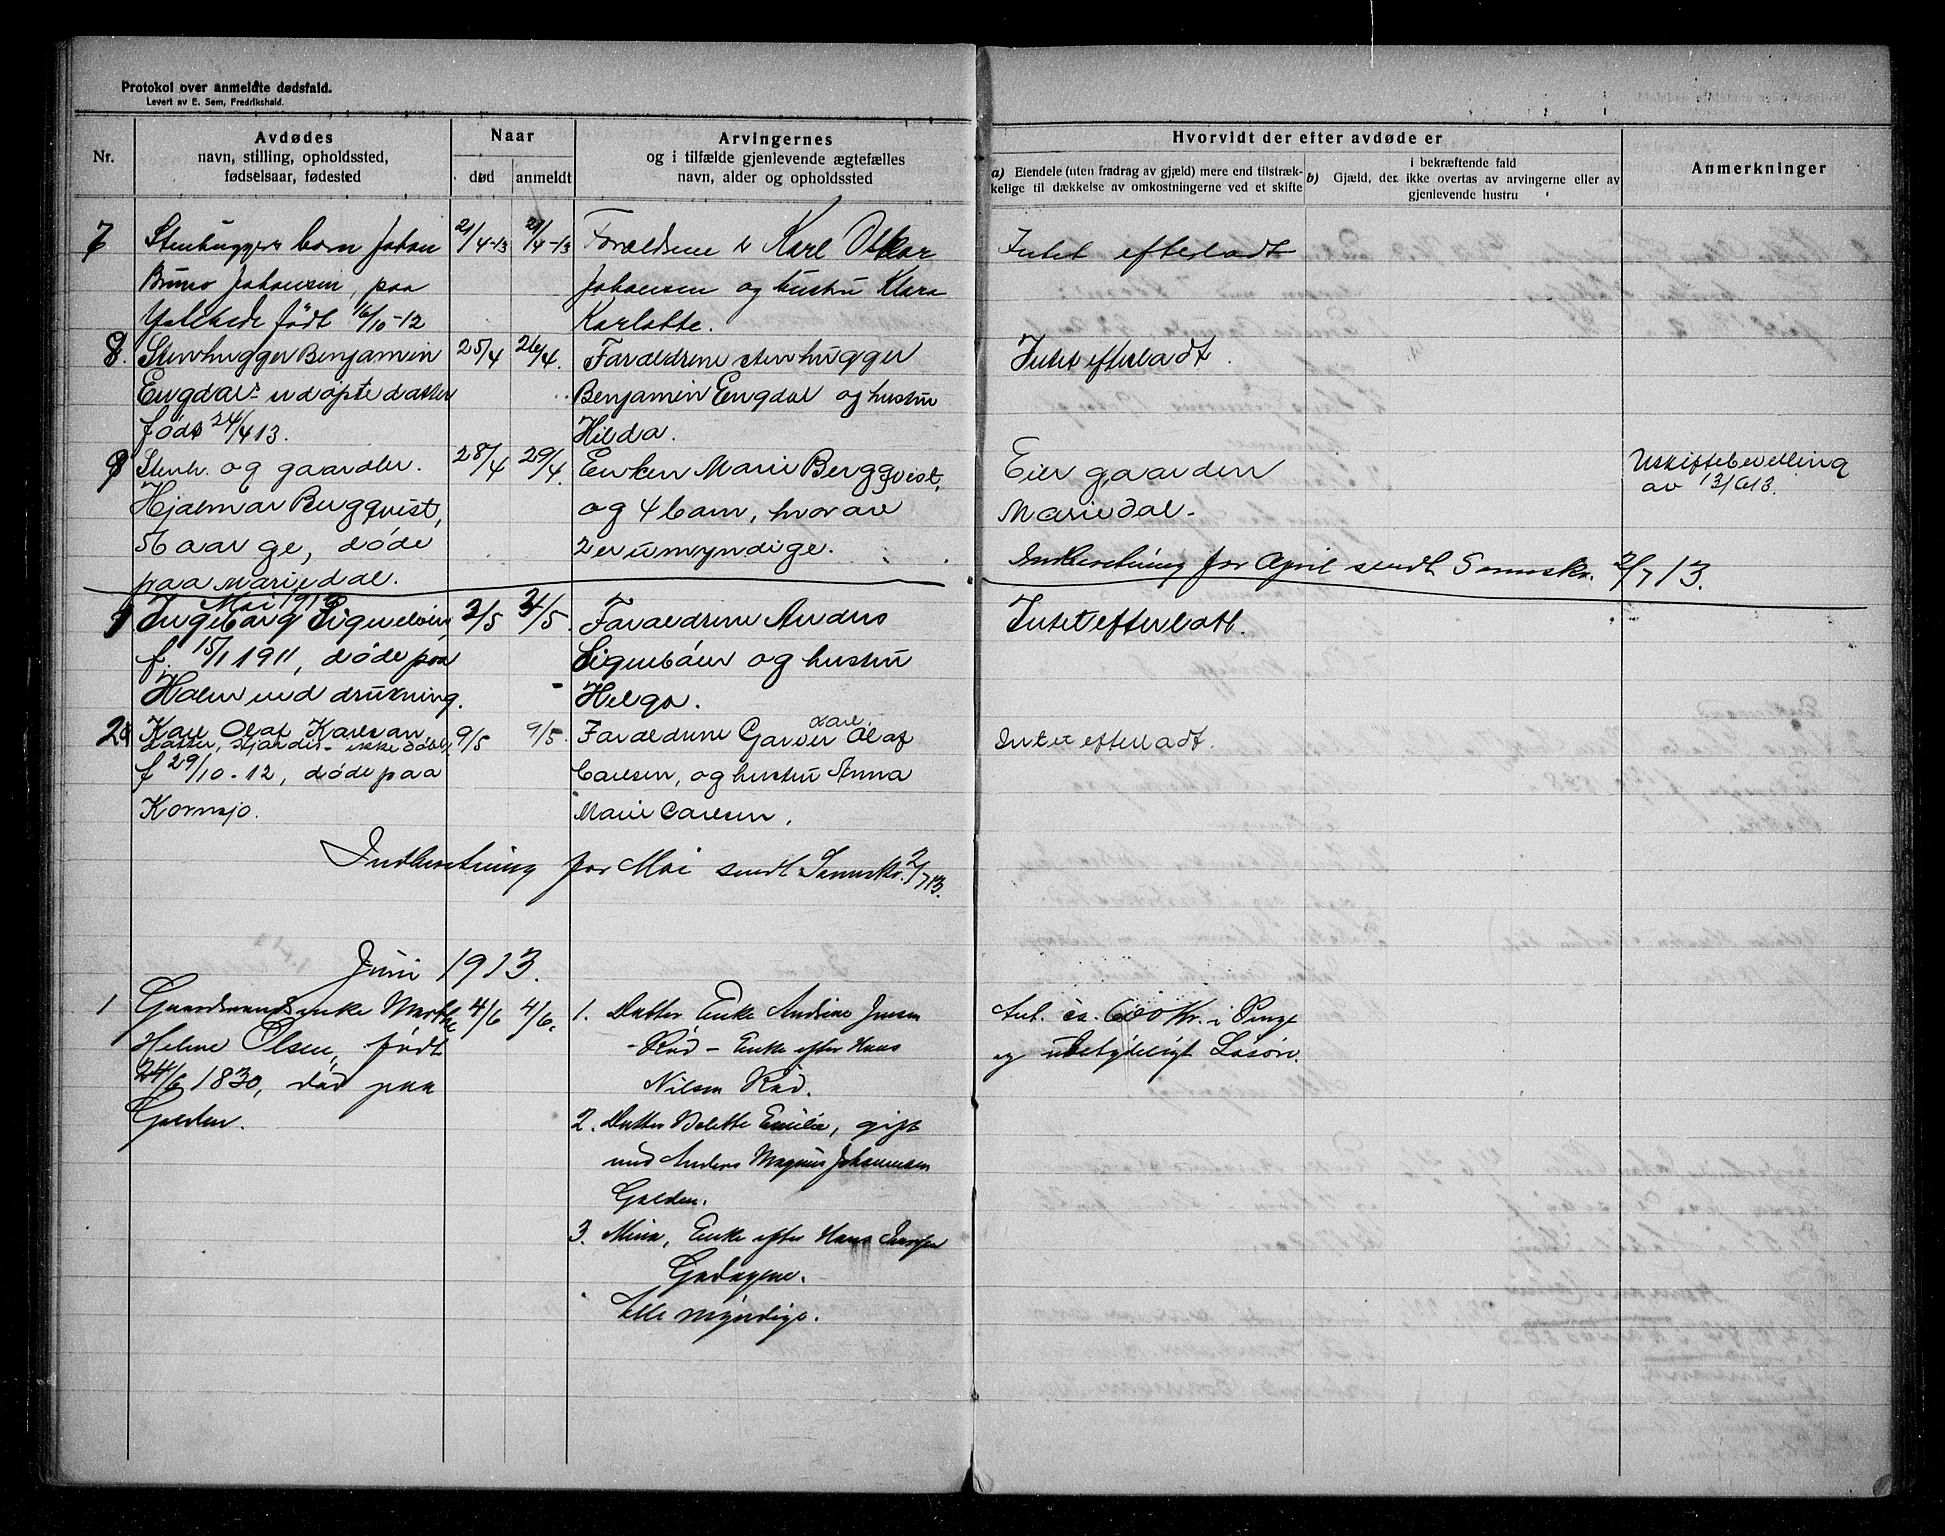 Protokol over anmeldte dødsfald.
Levert av E. Sem, Fredrikshald.
Nr.
Avdødes
navn, stilling, opholdssted,
fødselsaar, fødested
Naar
død
anmeldt
Arvingernes
og i tilfælde gjenlevende ægtefælles
navn, alder og opholdssted
Hvorvidt der efter avdøde er
a) Eiendele (uten fradrag av gjæld) mere end tilstræk-
kelige til dækkelse av omkostningerne ved et skifte
b) Gjæld, der i bekræftende fald
ikke overtas av arvingerne eller av
gjenlevende hustru
Anmerkninger
7 Stenhuggers barn Johan
Bruno Johansen, paa
født 16/10-12
21/4-13
21/4-13
Forældrene Karl Oskar
Johansen og hustru Klara
Karlotte.
Intet efterladt
8. Stenhugger Benjamin
Engdals udøpte datter
født 24/4 13.
25/4
26/4.
Forældrene stenhugger
Benjamin Engdal og hustru
Hilda.
Intet efterladt.
9 Stenh. og gaardbr.
Hjalmar Bergqvist,
døde
paa Mariedal.
28/4
29/4.
Enken Marie Bergqvist,
og 4 barn, hvorav
2 er umyndige.
Eier gaarden
Mariedal.
Uskiftebevilling
av 13/6 13.
Indberetning for April sendt Sorensk. 2/7 13.
Mai 1913
1 Ingeborg
f. 15/1 1911, døde paa
Holm ved drukning.
3/5
3/5.
Forældrene Anders
og hustru
Helga.
Intet efterladt.
2 Karl Olaf Karlsen,
ikke døbt,
f 29/10-12, døde paa
Kornsjø.
9/5
9/5.
Forældrene Garver Karl Olaf
Carlsen, og hustru Anna
Marie Carlsen.
Intet efterladt.
Indberetning for Mai sendt Sorensk. 2/7 13.
Juni 1913.
1 Gaardmandsenke Marthe
Helene Olsen, født
24/6 1830, død paa
Golden.
4/6
4/6.
1. Datter Enke Andrine Jensen
Rød - Enke efter Hans
Nilsen Rød.
2. Datter Bolette Emilie, gift
med Anders Magnus Johannesen
Golden.
3. Mina, Enke efter Hans
Alle myndige.
Ant. ca. 600 Kr. i Penge
og ubetydeligt Løsøre.